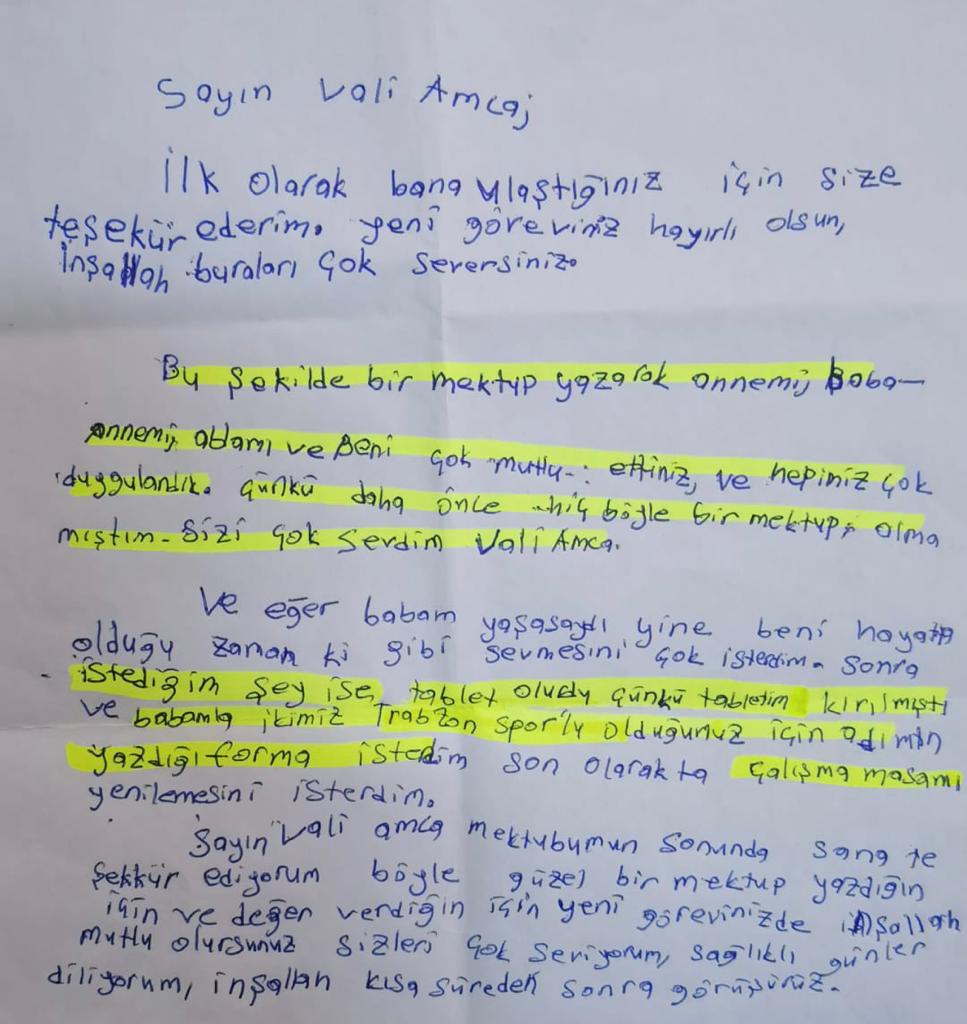 Sayın Vali Amca,
İlk olarak bana ulaştığınız için size
teşekür ederim. yeni göreviniz hayırlı olsun,
inşallah buraları çok seversiniz.
Bu şekilde bir mektup yazarak annemi, baba-
annemi, ablamı ve Beni çok mutlu ettiniz, ve hepiniz çok
duygulandık. Çünkü daha önce hiç böyle bir mektup, alma
mıştım. Sizi çok Serdim Vali Amca.
Ve eğer babam yaşasaydı yine beni hayatta
olduğu zaman ki gibi sevmesini çok isterdim. sonra
istediğim şey ise, tablet oludu çünkü tabletim kırılmıştı
ve babamla ikimiz Trabzon spor'lu olduğunuz için adımın
yazdığı forma isterdim son olarakta çalışma masamı
yenilemesini isterdim.
Sayın Vali amca mektubumun sonunda sana te
şekkür ediyorum böyle güzel bir mektup yazdığın
için ve değer verdiğin için yeni görevinizde inşallah
mutlu olursunuz sizleri çok seviyorum, sağlıklı günler
diliyorum, inşallah kısa süreden sonra görüşürüz.